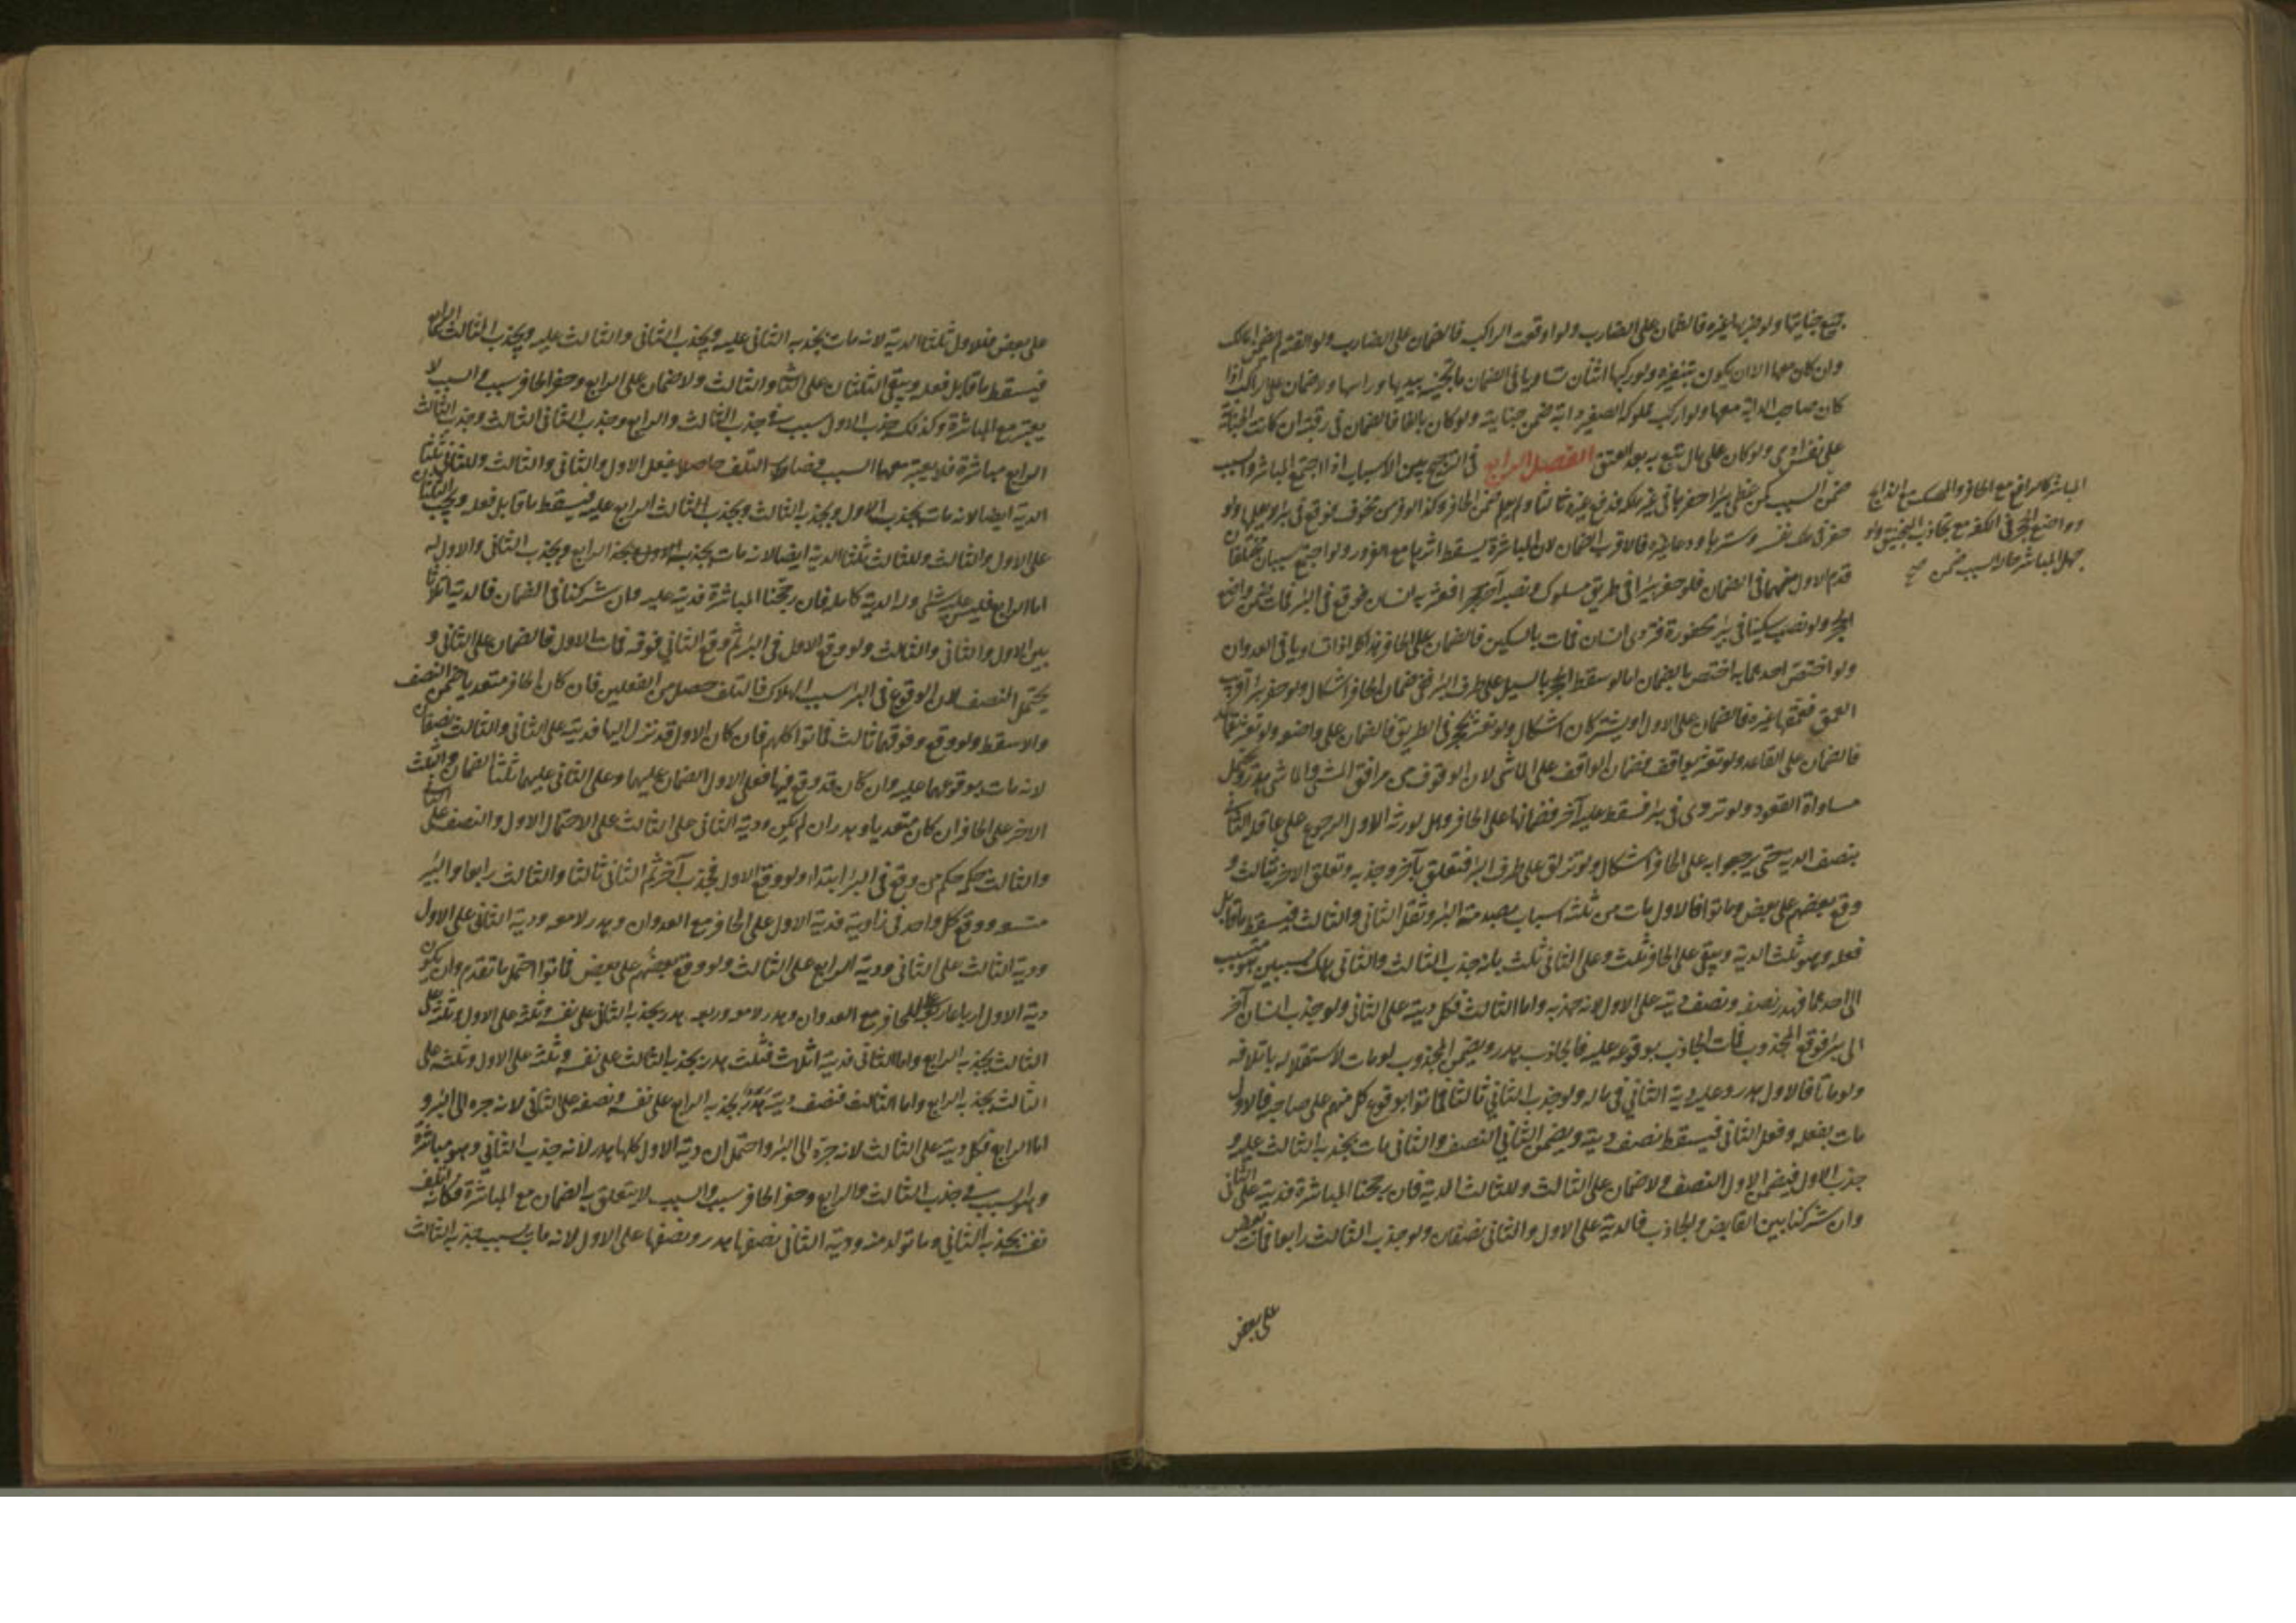 جميع جنايتها ولو ضربها غيره فالضمان على الضارب ولو اوقعت الراكب فالضمان على الضارب ولو القته لم يضمن المالك
وان كان معها الا ان يكون بتنفيره ولو ركبها اثنان تساويا في الضمان ما تجنيه بيديها وراسها ولا ضمان على الراكب اذا
كان صاحب الدابة معها ولو اركب مملوكه الصغير دابة ضمن جنايته ولو كان بالغا فالضمان في رقبته ان كانت الجناية
على نفس ادمي ولو كان على مال تبع به بعد العتق الفصل الرابع في الترجيح بين الاسباب اذا اجتمع المباشر والسبب
ضمن السبب كمن غطى بئرا حفرها في غير ملكه فدفع غيره ثالثا ولم يعلم ضمن الحافر وكذا لو فر من مخوف فوقع في بئر لا يعلمها ولو
حفر في ملك نفسه وسترها ودعا غيره فالاقرب الضمان لان المباشرة يسقط اثرها مع الغرور ولو اجتمع سببان مختلفان
قدم الاول منهما في الضمان فلو حفر بئرا في طريق مسلوك ونصب آخر حجرا فعثر به انسان فوقع في البئر فمات ضمن واضع
الحجر ولو نصب سكينا في بئر محفورة فتردى انسان فمات بالسكين فالضمان على الحافر هذا اذا تساويا في العدوان
ولو اختص احدهما به اختص بالضمان اما لو سقط الحجر بالسيل على طرف البئر ففي ضمان الحافر اشكال ولو حفر بئرا قريب
العمق فعمقها غيره فالضمان على الاول او يشتركان اشكال ولو تعثر بحجر في الطريق فالضمان على واضعه ولو تعثر بقاعد
فالضمان على القاعد ولو تعثر بواقف فضمان الواقف على الماشي لان الوقوف من مرافق المشي والماشي هدر ويحتمل
مساواة القعود ولو تردى في بئر فسقط عليه آخر فضمانهما على الحافر وهل لورثة الاول الرجوع على عاقلة الثاني
بنصف الدية حتى يرجعوا به على الحافر اشكال ولو تزلق على طرف البئر فتعلق بآخر وجذبه وتعلق الاخر بثالث و
وقع بعضهم على بعض وماتوا فالاول مات من ثلثة اسباب بصدمة البئر وثقل الثاني والثالث فيسقط ما قابل
فعله وهو ثلث الدية ويبقى على الحافر ثلث وعلى الثاني ثلث بانه جذب الثالث والثاني هلك بسببين هو متسبب
الى احدهما فهدر نصفه ونصف ديته على الاول لانه جذبه واما الثالث فكل ديته على الثاني ولو جذب انسان آخر
الى بئر فوقع المجذوب فمات الجاذب بوقوعه عليه فالجاذب هدر ويضمن المجذوب لو مات لاستقلاله باتلافه
ولو ماتا فالاول هدر وعليه دية الثاني في ماله ولو جذب الثاني ثالثا فماتوا بوقوع كل منهم على صاحبه فالاول
مات بفعله وفعل الثاني فيسقط نصف ديته ويضمن الثاني النصف والثاني مات بجذبه الثالث عليه و
جذب الاول فيضمن الاول النصف ولا ضمان على الثالث وللثالث الدية فان رجحنا المباشرة فديته على الثاني
وان شركنا بين القابض والجاذب فالدية على الاول والثاني نصفان ولو جذب الثالث رابعا فمات بعض
على بعض
المباشر كالدافع مع الحافر والممسك مع الذابح
وواضع الحجر في الكفة مع جاذب المنجنيق ولو
جهل المباشر حال السبب ضمن صح
على بعض فللاول ثلثا الدية لانه مات بجذبه الثاني عليه وبجذب الثاني والثالث عليه وبجذب الثالث الرابع
فيسقط ما قابل فعله ويبقى الثلثان على الثاني والثالث ولا ضمان على الرابع وحفر الحافر سبب والسبب لا
يعتبر مع المباشرة وكذلك جذب الاول سبب في جذب الثالث والرابع وجذب الثاني الثالث وجذب الثالث
الرابع مباشرة فلا يعتبر معها السبب فصار سبب التلف حاصلا بفعل الاول والثاني والثالث وللثاني ثلثا
الدية ايضا لانه مات بجذب الاول وبجذبه الثالث وبجذب الثالث الرابع عليه فيسقط ما قابل فعله ويجب الثلثان
على الاول والثالث وللثالث ثلثا الدية ايضا لانه مات بجذبه الرابع وبجذب الثاني والاول له
اما الرابع فليس عليه شئ وله الدية كاملة فان رجحنا المباشرة فديته عليه وان شركنا في الضمان فالدية اثلاثا
بين الاول والثاني والثالث ولو وقع الاول في البئر ثم وقع الثاني فوقه فمات الاول فالضمان على الثاني و
يحتمل النصف لان الوقوع في البئر سبب الهلاك فالتلف حصل من الفعلين فان كان الحافر متعديا ضمن النصف
والا سقط ولو وقع فوقهما ثالث فماتوا كلهم فان كان الاول قد نزل اليها فديته على الثاني والثالث نصفان
لانه مات بوقوعهما عليه وان كان قد وقع فيها فعلى الاول الضمان عليهما وعلى الثاني عليهما ثلثا الضمان والثلث
الاخر على الحافر ان كان متعديا وهدر ان لم يكن ودية الثاني على الثالث على الاحتمال الاول والنصف على الثاني
والثالث حكمه حكم من وقع في البئر ابتداء ولو وقع الاول فجذب آخر ثم الثاني ثالثا والثالث رابعا والبئر
متسع ووقع كل واحد في زاوية فدية الاول على الحافر مع العدوان وهدر لا معه ودية الثاني على الاول
ودية الثالث على الثاني ودية الرابع على الثالث ولو وقع بعضهم على بعض فماتوا احتمل ما تقدم وان يكون
دية الاول ارباعا ربع على الحافر مع العدوان وهدر لا معه وربعه هدر بجذبه الثاني على نفسه وثلثه على الاول وثلثه على
الثالث بجذبه الرابع واما الثاني فديته اثلاث فثلث هدر بجذبه الثالث على نفسه وثلثه على الاول وثلثه على
الثالث بجذبه الرابع واما الثالث فنصف ديته هدر بجذبه الرابع على نفسه ونصفه على الثاني لانه جره الى البئر و
اما الرابع فكل ديته على الثالث لانه جره الى البئر واحتمل ان دية الاول كلها هدر لانه جذب الثاني وهو مباشرة
وهو سبب في جذب الثالث والرابع وحفر الحافر سبب والسبب لا يتعلق به الضمان مع المباشرة فكانه اتلف
نفسه بجذبه الثاني وما تولد منه ودية الثاني نصفها هدر ونصفها على الاول لانه مات بسبب جذبه الثالث